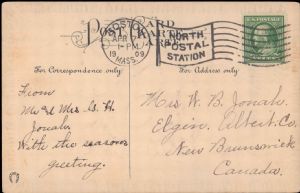 POST CARD
BOSTON
APR 7
1-PM
1909
MASS.
NORTH
POSTAL
STATION
For Correspondence only.
For Address only
From
Mr & Mrs G. H.
Jonah.
With the seasons
greeting.
Mrs W. B. Jonah.
Elgin, Albert Co.
New Brunswick
Canada.